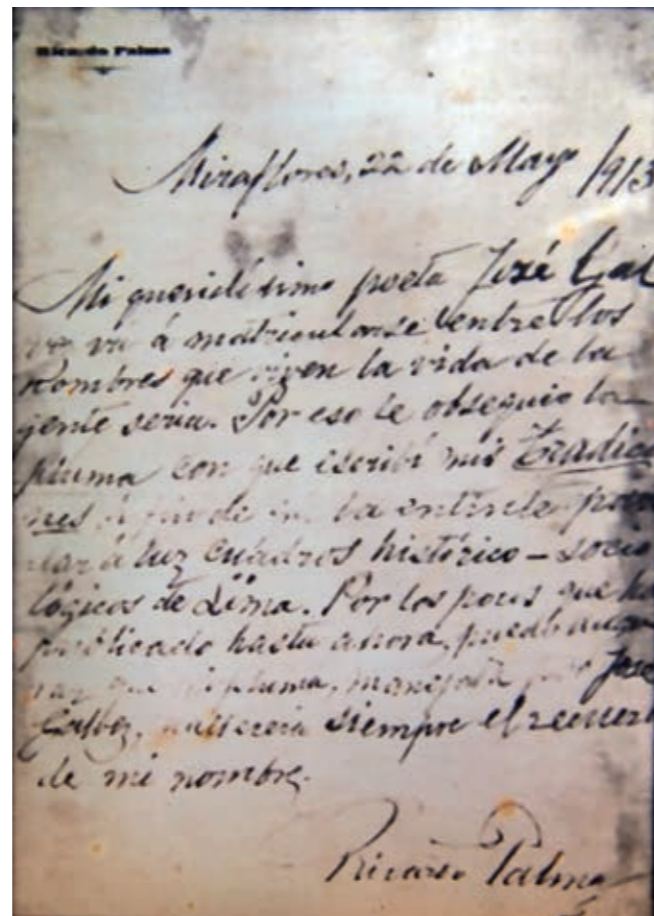 Ricardo Palma
Miraflores, 22 de Mayo /913
Mi queridísimo poeta José Gal
vez vá á matricularse entre los
hombres que viven la vida de la
gente seria. Por eso le obsequio la
pluma con que escribí mis Tradicio
nes á fin de la entinte para
dar á luz cuadros histórico-socio
lógicos de Lima. Por los pocos que ha
publicado hasta ahora, puedo augu
rar que mi pluma, manejada por José
Galvez, siempre el recuerd
de mi nombre.
Ricardo Palma